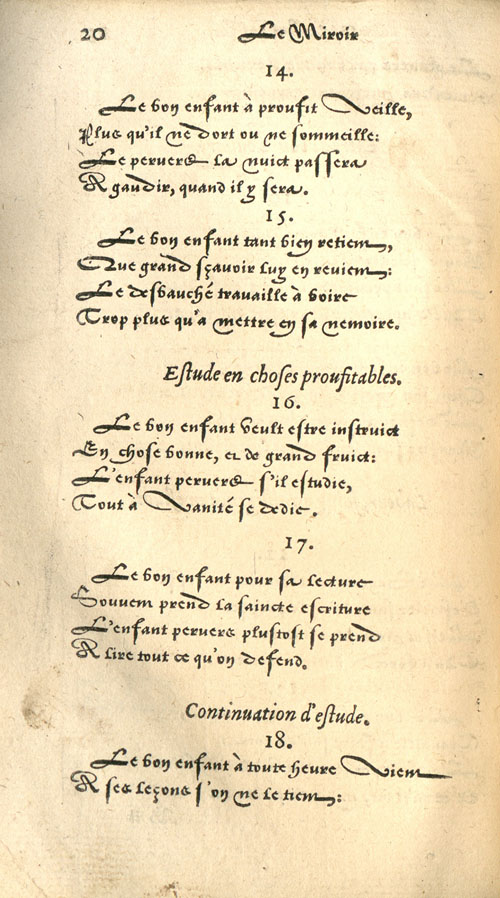 20 Le Miroir
14.
Le bon enfant à proufit veille,
Plus qu'il ne dort ou ne sommeille:
Le pervers la nuict passera
A gaudir, quand il y sera.
15.
Le bon enfant tant bien retient,
Que grand sçavoir luy en revient:
Le desbauché travaille à boire
Trop plus qu'a mettre en sa memoire.
Estude en choses proufitables.
16.
Le bon enfant veult estre instruict
En chose bonne, et de grand fruict:
L'enfant pervers s'il estudie,
Tout à vanité se dedie.
17.
Le bon enfant pour sa lecture
Souvent prend la saincte escriture
L'enfant pervers plustost se prend
A lire tout ce qu'on defend.
Continuation d'estude.
18.
Le bon enfant à toute heure vient
A ses leçons s'on ne le tient: